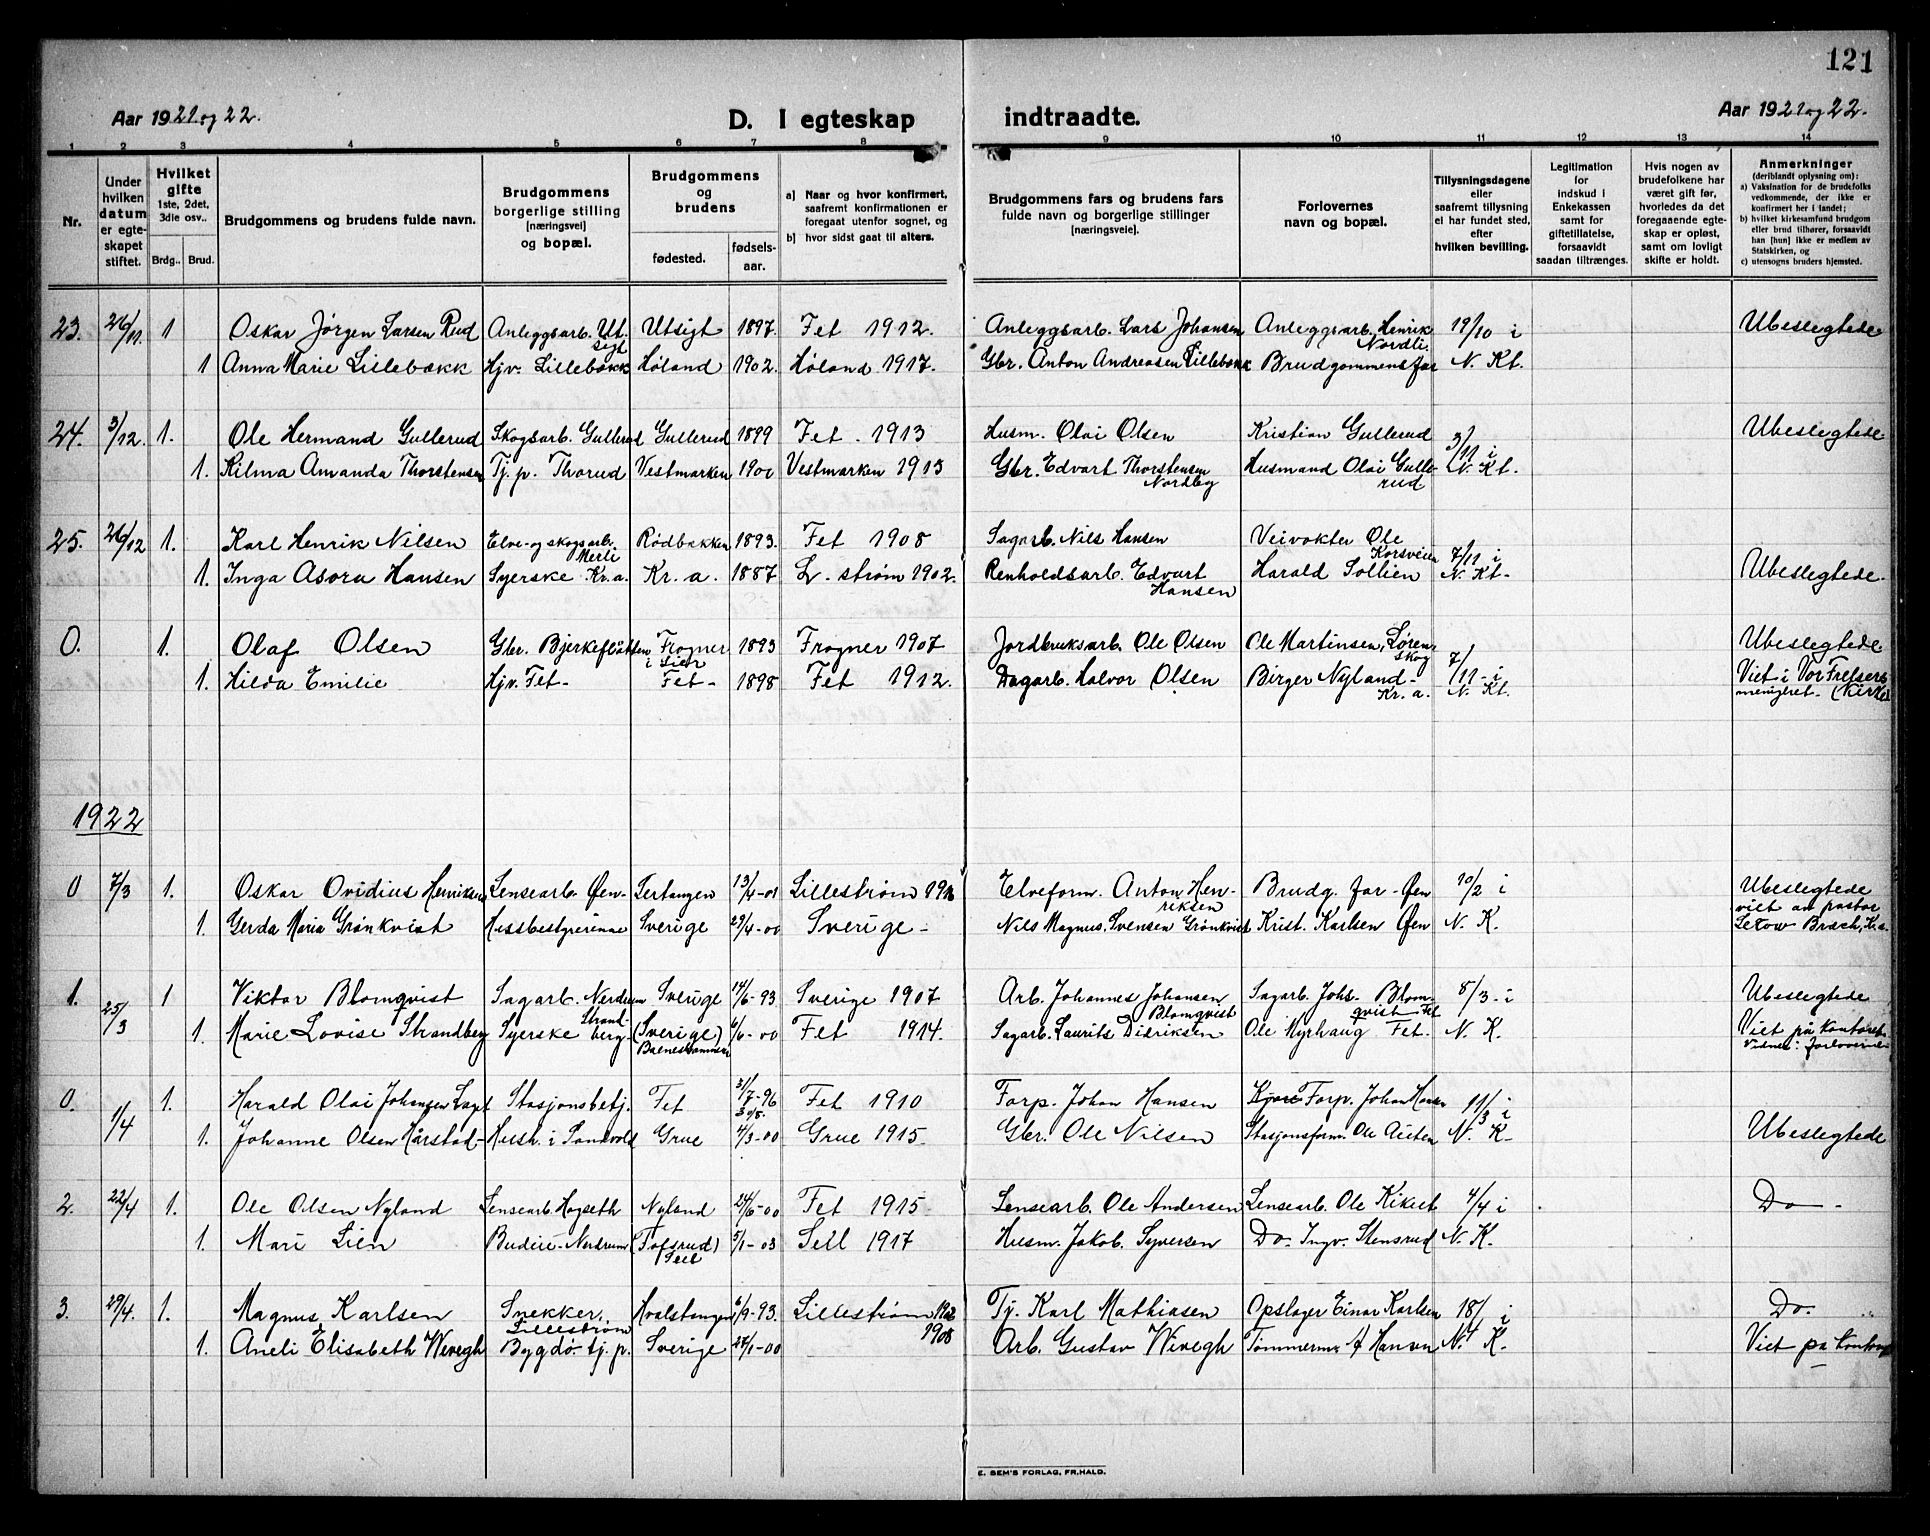 121
Aar 1921 og 22.
D. I egteskap indtraadte.
Aar 1921 og 22.
1 2 3 4 5 6 7 8 9 10 11 12 13 14
Nr.
Under hvilken datum er egteskapet stiftet.
Hvilket gifte 1ste, 2det, 3die osv..
Brdg.. Brud.
Brudgommens og brudens fulde navn.
Brudgommens borgerlige stilling [næringsvei] og bopæl.
Brudgommens og brudens
fødested. fødselsaar.
a) Naar og hvor konfirmert, saafremt konfirmationen er foregaat utenfor sognet, og
b) hvor sidst gaat til alters.
Brudgommens fars og brudens fars fulde navn og borgerlige stillinger [næringsveie].
Forlovernes navn og bopæl.
Tillysningsdagene eller saafremt tillysning ei har fundet sted, efter hvilken bevilling.
Legitimation for indskud i Enkekassen samt for giftetillatelse, forsaavidt saadan tiltrænges.
Hvis nogen av brudefolkene har været gift før, hvorledes da det foregaaende egteskap er opløst, samt om lovligt skifte er holdt.
Anmerkninger (deriblandt oplysning om):
a) Vaksination for de brudefolks vedkommende, der ikke er konfirmert her i landet;
b) hvilket kirkesamfund brudgom eller brud tilhører, forsaavidt han [hun] ikke er medlem av Statskirken, og
c) utensogns bruders hjemsted.
23. 26/11. 1 Oskar Jørgen Larsen Rud Anleggsarb. Utsigt Utsigt 1897. Fet 1912. Anleggsarb. Lars Johansen Anleggsarb. Henrik Nordli. 19/10 i Ubeslegtede
1 Anna Marie Lillebækk Hjv. Lillebækk Høland 1902. Høland 1917. Gbr. Anton Andreasen Lillebækk Brudgommens far N. Kt.
24. 3/12. 1. Ole Hermand Gullerud Skogsarb. Gullerud Gullerud 1899 Fet. 1913 Husm. Olai Olsen Kristian Gullerud 3/11 i Ubeslegtede
1. Kilma Amanda Thorstensen Tj. p. Thorud Vestmarken 1901 Vestmarken 1913 Gbr. Edvart Thorstensen Nordby Husmand Olai Gullerud. N. Kt.
25. 26/12 1. Karl Henrik Nilsen Elve- og skogsarb. Merli Rødbakken 1893. Fet 1908 Sagarb. Nils Hansen Veivokter Ole Korsveien 7/11 i
1. Inga Asora Hansen Syerske Kr.a. Kr. a. 1887 L. strøm 1902. Renholdsarb. Edvart Hansen Harald Sollien N. Kt. Ubeslegtede.
0. 1. Olaf Olsen Gbr. Bjerkefløtten i Lier Frogner 1893 Frogner 1907 Jordbruksarb. Ole Olsen Ole Martinsen, Lørenskog 7/11 i Ubeslegtede
1. Hilda Emilie Hjv. Fet Fet 1898 Fet 1912. Dagarb. Halvor Olsen Birger Nyland Kr. a. N. Kt. Viet i Vor Frelsers menigret (Kirke)
1922
0 7/3 1. Oskar Ovidius Henriksen Lensearb. Øen Tertangen 13/4-01 Lillestrøm 1916 Elveform. Anton Henriksen Brudg. far Øen 10/2 i Ubeslegtede
1. Gerda Maria Grønkvist Husbestyrerinne Sverige 29/4-00 Sverige Nils Magnus Svensen Grønkvist Krist. Karlsen Øen N. K. viet av pastor Sekow Bræch, Kr.a.
1. 25/3 1 Viktor Blomqvist Sagarb. Nerdrum Sverige 14/6-93 Sverige 1907 Arb. Johannes Johansen Blomqvist Sagarb. Johs. Blomqvist Fet 5/3 i Ubeslegtede
1. Marie Lovise Strandberg Syerske Strandberg (Sverige) 6/6-00 Fet 1914. Sagarb. Laurits Didriksen Ole Myrhaug Fet. N. K. Viet på kontoret Vidner: forloverne
0. 1/4 1. Harald Olai Johansen Laget Stasjonsbetj. Fet 31/7-96 Fet 1910 Forp. Johan Hansen Forp. Johan Hansen 11/3 i
1. Johanne Olsen Hårstad Hush. i Sandvold Grue 4/3-00 Grue 1915 Gbr. Ole Nilsen Stasjonsform. Ole Auten N. K. Ubeslegtede
2. 22/4 1. Ole Olsen Nyland Lensearb. Hogseth Nyland 24/6-00 Fet 1915 Lensearb. Ole Andersen Lensearb. Ole Kikut 4/4 i Do
1. Mari Lien Budeie Nerdrum (Tofsrud) Sell 5/1-03 Sell 1917 Husm. Jakob Syversen Do. Ingv. Stensrud N. K.
3. 29/4. 1. Magnus Karlsen Snekker, Lillestrøm Hvalstangen 6/9-93. Lillestrøm 1908 Tj. Karl Mathiasen Opslager Einar Karlsen 18/4 i Do.
1. Aneli Elisabeth Wevegh Bygdø. tj. p. Sverige 24/1-00 1908 Arb. Gustav Wivegh Tømmerm. A Hansen N. K. Viet på kontoret
E. SEM'S FORLAG, FR.HALD.